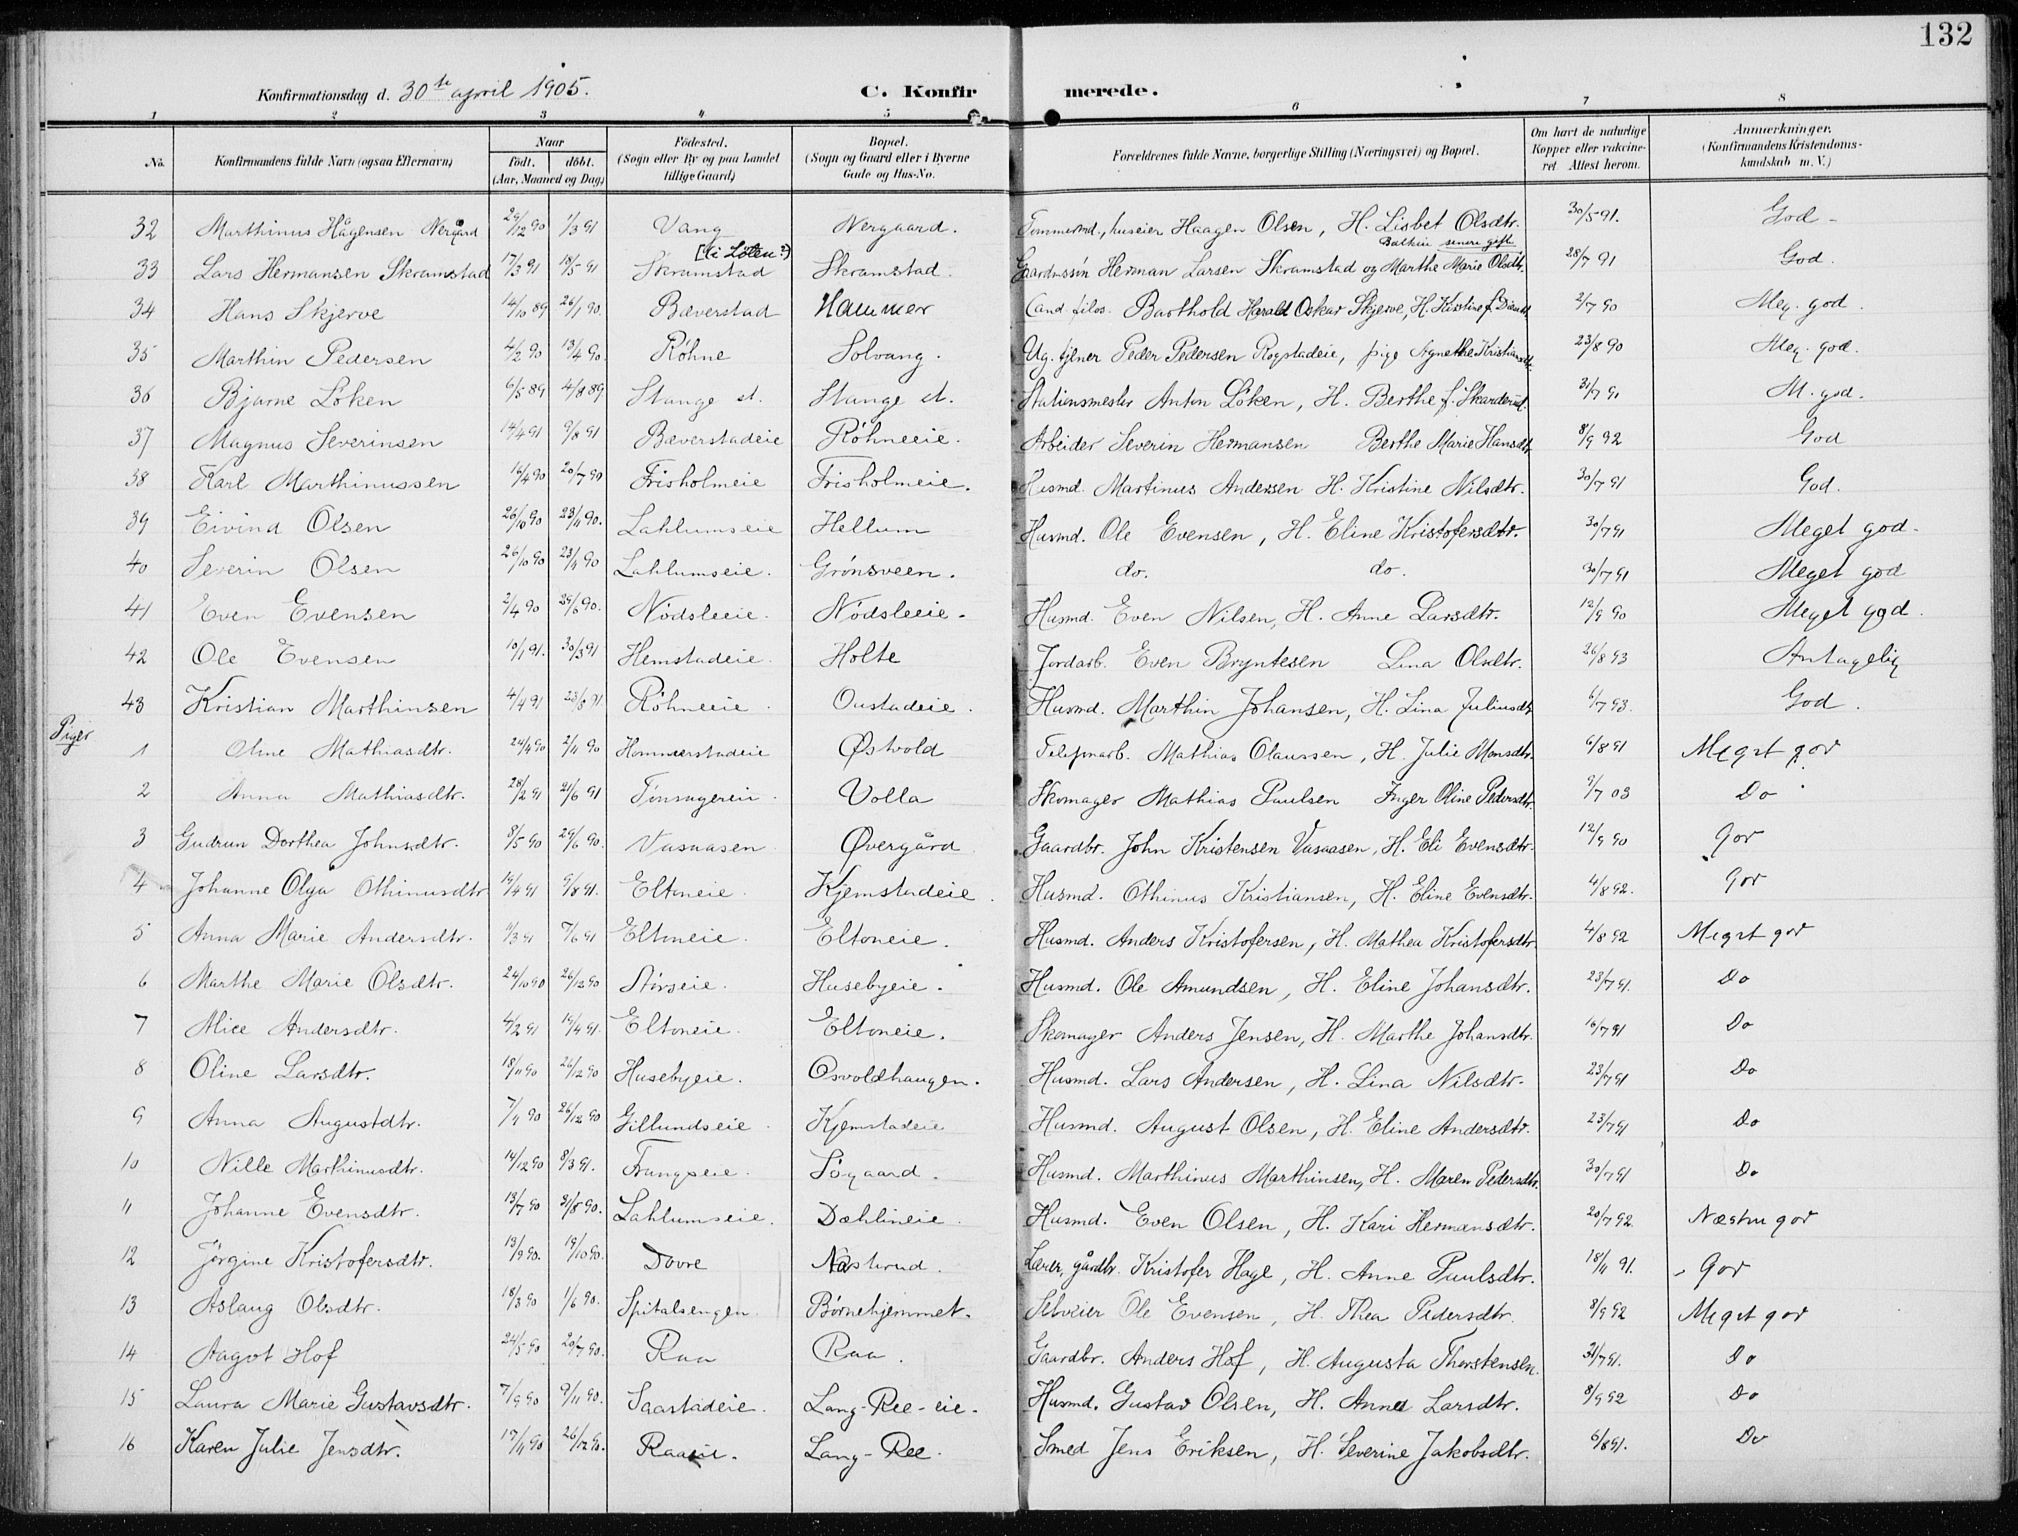 132
Konfirmationsdag d. 30te april 1905. C. Konfirmerede.
1 2 3 4 5 6 7 8
No. Konfirmandens fulde Navn (ogsaa Efternavn) Naar født. døbt. (Aar, Maaned og Dag) Fødested. (Sogn eller By og paa Landet tillige Gaard) Bopæl. (Sogn og Gaard eller i Byerne Gade og Hus-No. Forældrenes fulde Navne, borgerlige Stilling (Næringsvei) og Bopæl. Om havt de naturlige Kopper eller vakcineret Attest herom. Anmerkninger. (Konfirmandens Kristendomskundskab m. V.)
32 Marthinus Hågensen Nergård 29/12 90 1/3 91 Vang Nergaard. Tømmermd., huseier Haagen Olsen, H. Lisbet Olsdtr. 30/5 91. God -
[i Løten?) senere gift
33 Lars Hermansen Skramstad 17/3 91 18/5 91 Skramstad Skramstad. Gaardmssøn Herman Larsen Skramstad og Marthe Marie Olsdtr. 28/7 91 God.
34 Hans Skjerve 14/10 89 26/1 90. Bæverstad Hammer Cand. filos. Barthold Harald Oskar Skjerve, H. Kristine f. 2/7 90 Meg. god.
35 Marthin Pedersen 4/2 90 13/4 90. Røhne Solvang. Ug. tjener Peder Pedersen Rogstadeie, pige Agnethe Kristiansdt. 23/8 90 Meg. god.
36 Bjarne Løken 6/5 89 4/8 89 Stange st. Stange st. Stationsmester Anton Løken, H. Berthe f. Skarderud. 31/7 91 M. god.
37 Magnus Severinsen 14/4 91 9/8 91 Bæverstadeie Røhneeie. Arbeider Severin Hermansen Berthe Marie Hansdtr. 8/9 92 God
38 Karl Marthinussen 16/4 90 20/7 90 Frisholmeie Frisholmeie. Husmd. Martinus Andersen H. Kristine Nilsdtr. 30/7 91 God.
39 Eivind Olsen 26/10 90 23/11 90. Lahlumseie Hellum Husmd. Ole Evensen, H. Eline Kristofersdtr. 30/7 91 Meget god-
40 Severin Olsen 26/10 90 23/11 90 Lahlumseie. Grønsveen. do. do. 30/7 91 Meget god
41 Even Evensen 2/4 90 29/6 90. Nødsleeie. Nødsleeie. Husmd. Even Nilsen, H. Anne Larsdtr. 12/9 90 Meget god.
42 Ole Evensen 10/1 91. 30/3 91 Hemstadeie. Holte Jordarb. Even Bryntesen Lina Olsdtr. 26/8 93 Antagelig
43 Kristian Marthinsen 4/4 91 23/8 91 Røhneeie. Oustadeie. Husmd. Marthin Johansen, H. Lina Juliusdt 6/7 93. God.
Piger
1 Oline Mathiasdtr. 24/4 90 2/11 90 Hommerstadeie Østvold Telefonarb. Mathias Olaussen, H. Julie Monsdtr. 6/8 91 Meget god
2 Anna Mathiasdtr. 28/2 91 21/6 91 Volla Skomager Mathias Paulsen Inger Oline Pedersdtr. 9/7 03 Do
3 Gudrun Dorthea Johnsdtr. 8/5 90 29/6 90. Vasaasen Øvergård Gaardbr. John Kristensen Vasaasen, H. Eli Evensdtr. 12/9 90 God
4 Johanne Olga Othinusdtr 14/4 91 9/8 91. Eltoneie. Kjemstadeie. Husmd. Othinus Kristiansen, H. Eline Evensdtr. 4/8 92. God
5 Anna Marie Andersdtr. 9/3 91 7/6 91 Eltoneie. Eltoneie. Husmd. Anders Kristofersen, H. Mathea Kristofersdtr 4/8 92 Meget god
6 Marthe Marie Olsdtr. 24/10 90 26/12 90 Størseie. Husebyeie. Husmd. Ole Amundsen, H. Eline Johansdtr. 23/7 91. Do
7 Alice Andersdtr. 4/2 91 19/4 91. Eltoneie. Eltoneie. Skomager Anders Jensen, H. Marthe Johansdtr. 16/7 91 Do
8 Oline Larsdtr. 18/11 90 26/12 90 Husebyeie. Osvoldhaugen. Husmd. Lars Andersen, H. Lina Nilsdtr. 23/7 91 Do
9 Anna Augustdtr. 7/11 90 26/12 90. Gillundseie. Kjemstadeie Husmd. August Olsen, H. Eline Andersdtr. 23/7 91 Do
10 Nille Marthinusdtr. 14/12 90 8/3 91. Frangseie. Søgaard. Husmd. Marthinus Marthinsen, H. Maren Pedersdtr. 30/7 91 Do
11 Johanne Evensdtr. 13/7 90 31/8 90. Lahlumseie. Dæhlineie. Husmd. Even Olsen, H. Kari Hermansdtr. 20/7 92. Næsten god
12 Jørgine Kristofersdtr. 13/9 90. 19/10 90. Dovre Nastrud. Lærer, gårdbr. Kristofer Hage, H. Anne Paulsdtr. 18/11 91. God
13 Aslaug Olsdtr. 18/3 90 1/6 90. Spitalsengen. Børnehjemmet. Selveier Ole Evensen, H. Thea Pedersdtr. 8/9 92 Meget god
14 Aagot Hof 24/5 90 20/7 90. Raa Raa. Gaardbr. Anders Hof, H. Augusta Thorstensen. 31/7 91. Do
15 Laura Marie Gustavsdtr. 7/9 90 9/11 90. Saastadeie. Lang-Ree-eie. Husmd. Gustav Olsen, H. Anne Larsdtr. 8/9 92 Do
16 Karen Julie Jensdtr. 17/11 90 26/12 90. Raaeie. Lang-Ree Smed Jens Eriksen, H. Severine Jakobsdtr. 6/8 91. Do